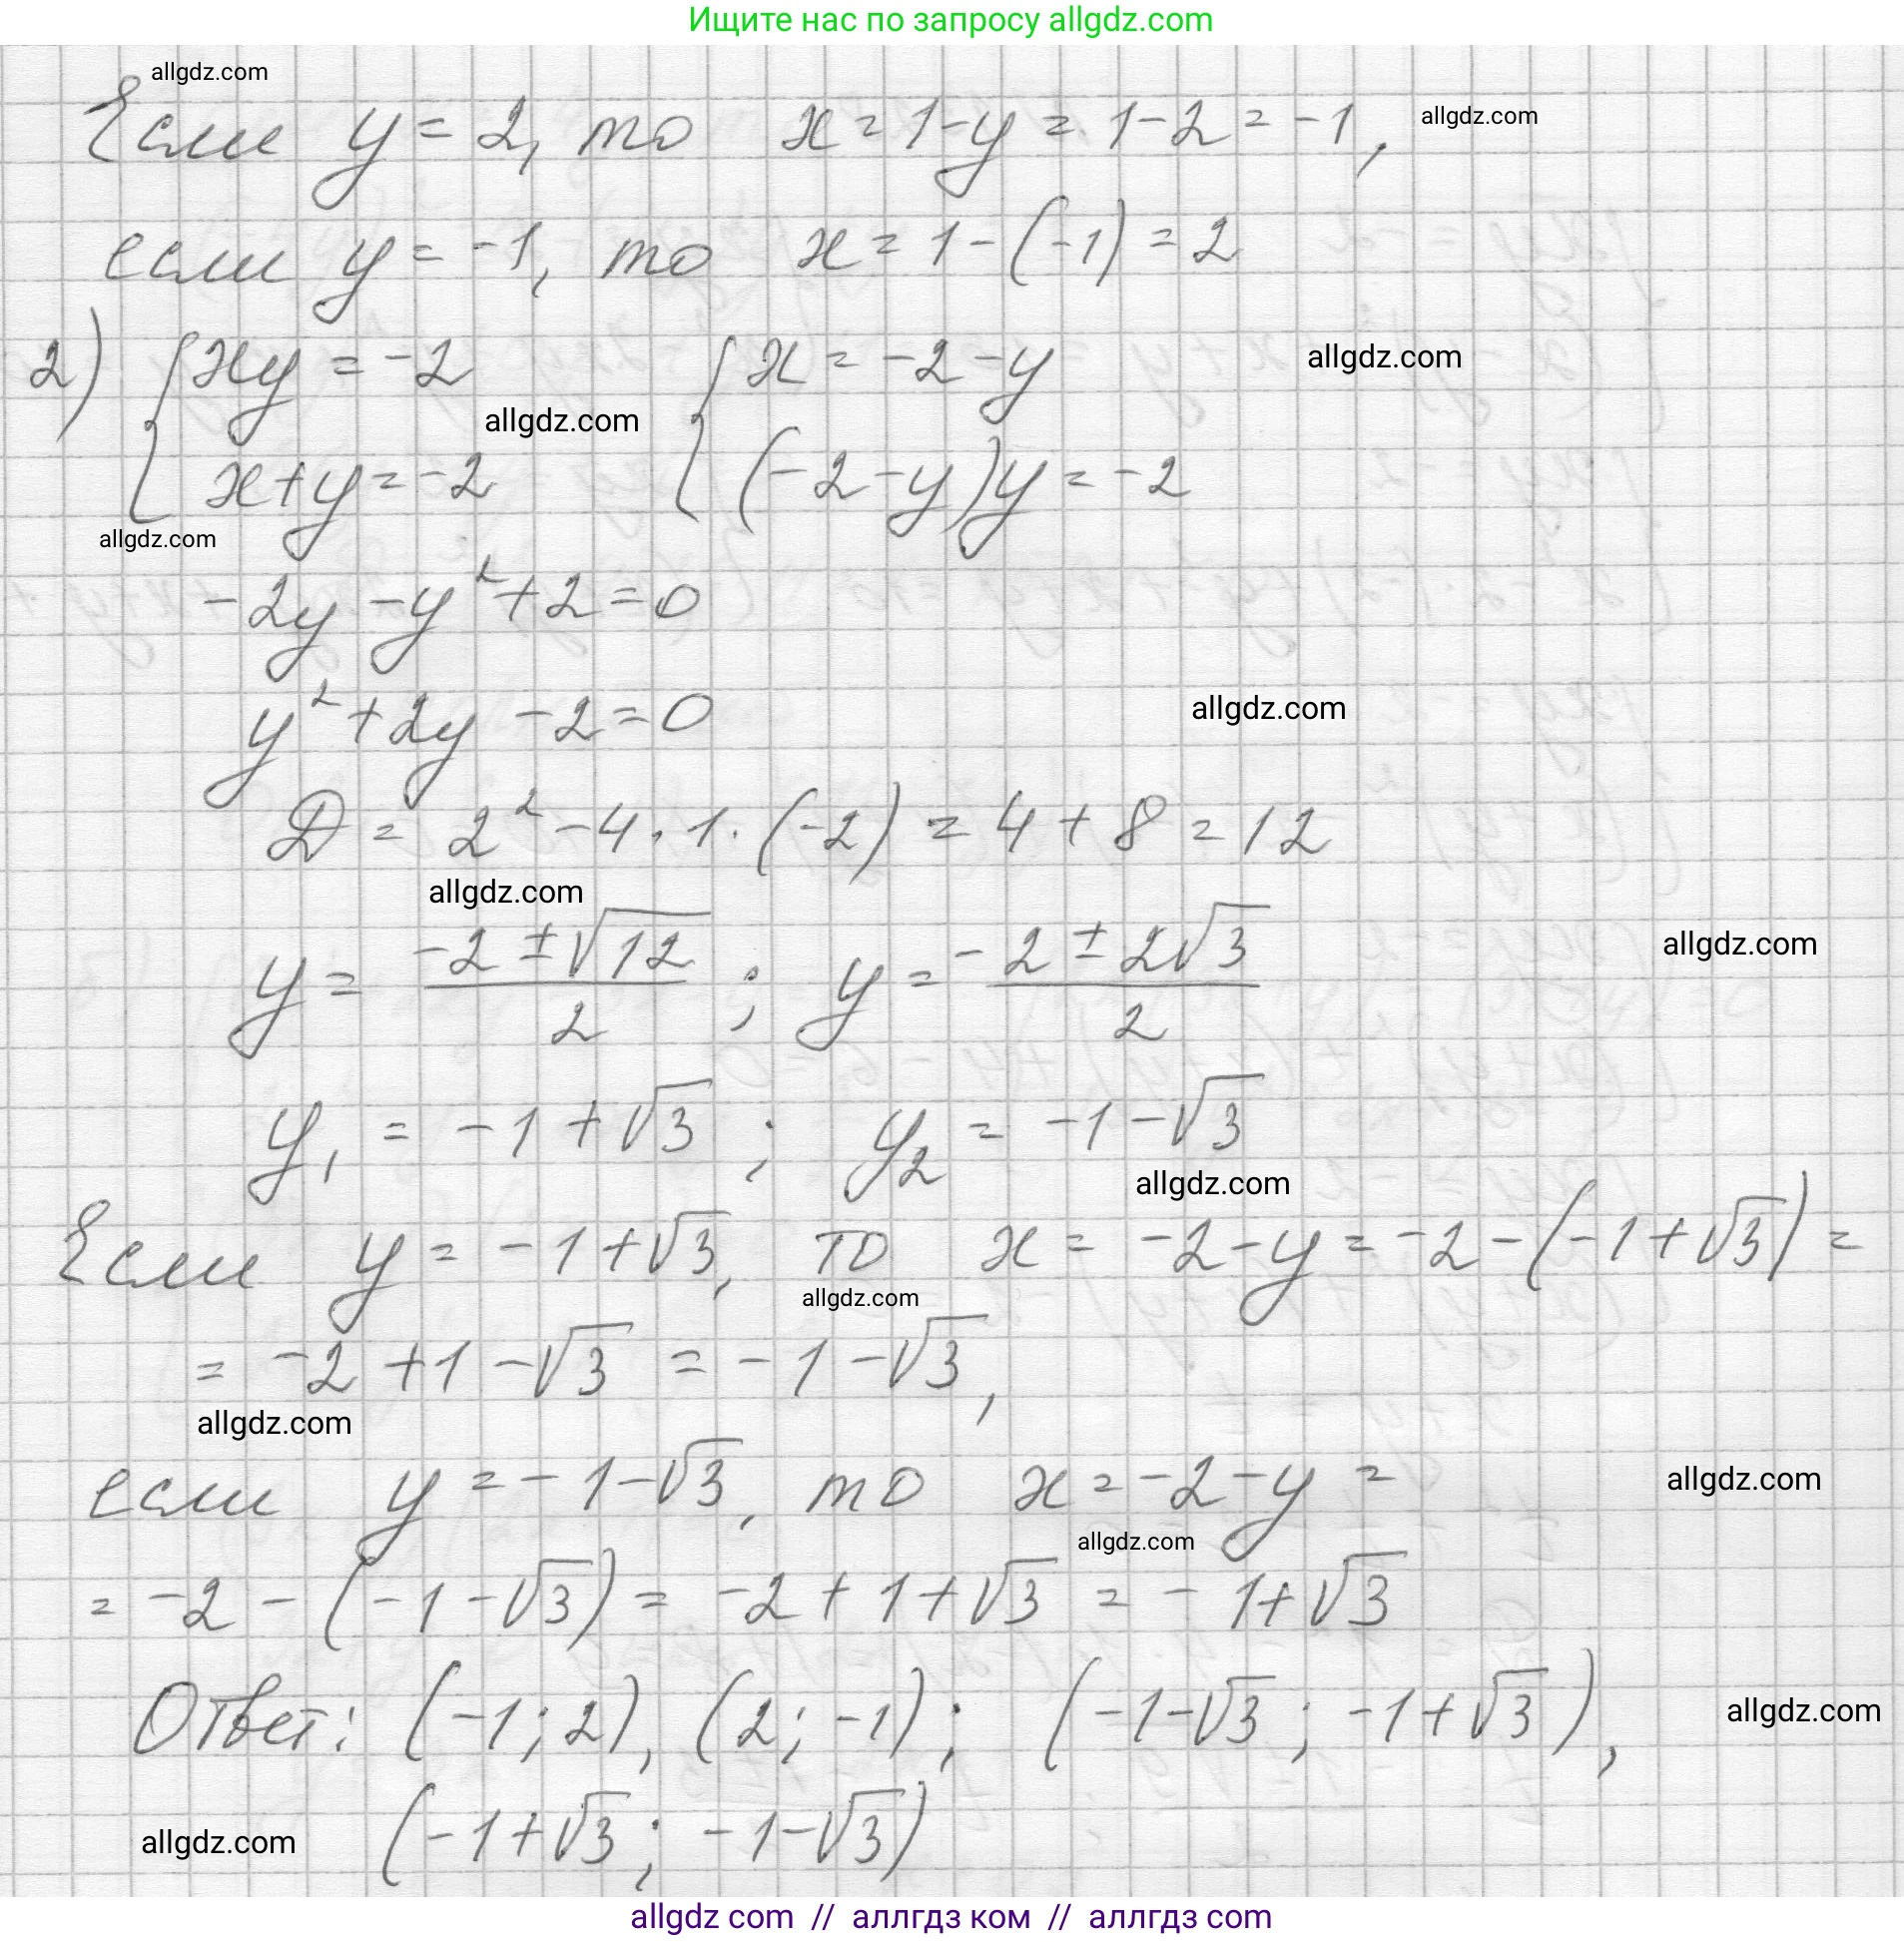 Ищите нас по запросу allgdz.com
allgdz.com
Если y = 2, то x = 1 - y = 1 - 2 = -1,
allgdz.com
если y = -1, то x = 1 - (-1) = 2
2) { xy = -2 { x = -2 - y
allgdz.com
allgdz.com
x + y = -2 (-2 - y)y = -2
allgdz.com
-2y - y² + 2 = 0
y² + 2y - 2 = 0
allgdz.com
D = 2² - 4 · 1 · (-2) = 4 + 8 = 12
allgdz.com
y = (-2 ± √12)/2 ; y = (-2 ± 2√3)/2
allgdz.com
y₁ = -1 + √3 ; y₂ = -1 - √3
allgdz.com
Если y = -1 + √3, то x = -2 - y = -2 - (-1 + √3) =
allgdz.com
= -2 + 1 - √3 = -1 - √3,
allgdz.com
если y = -1 - √3, то x = -2 - y =
allgdz.com
allgdz.com
= -2 - (-1 - √3) = -2 + 1 + √3 = -1 + √3
Ответ: (-1; 2), (2; -1); (-1 - √3; -1 + √3),
allgdz.com
(-1 + √3; -1 - √3)
allgdz.com
allgdz com // аллгдз ком // аллгдз com